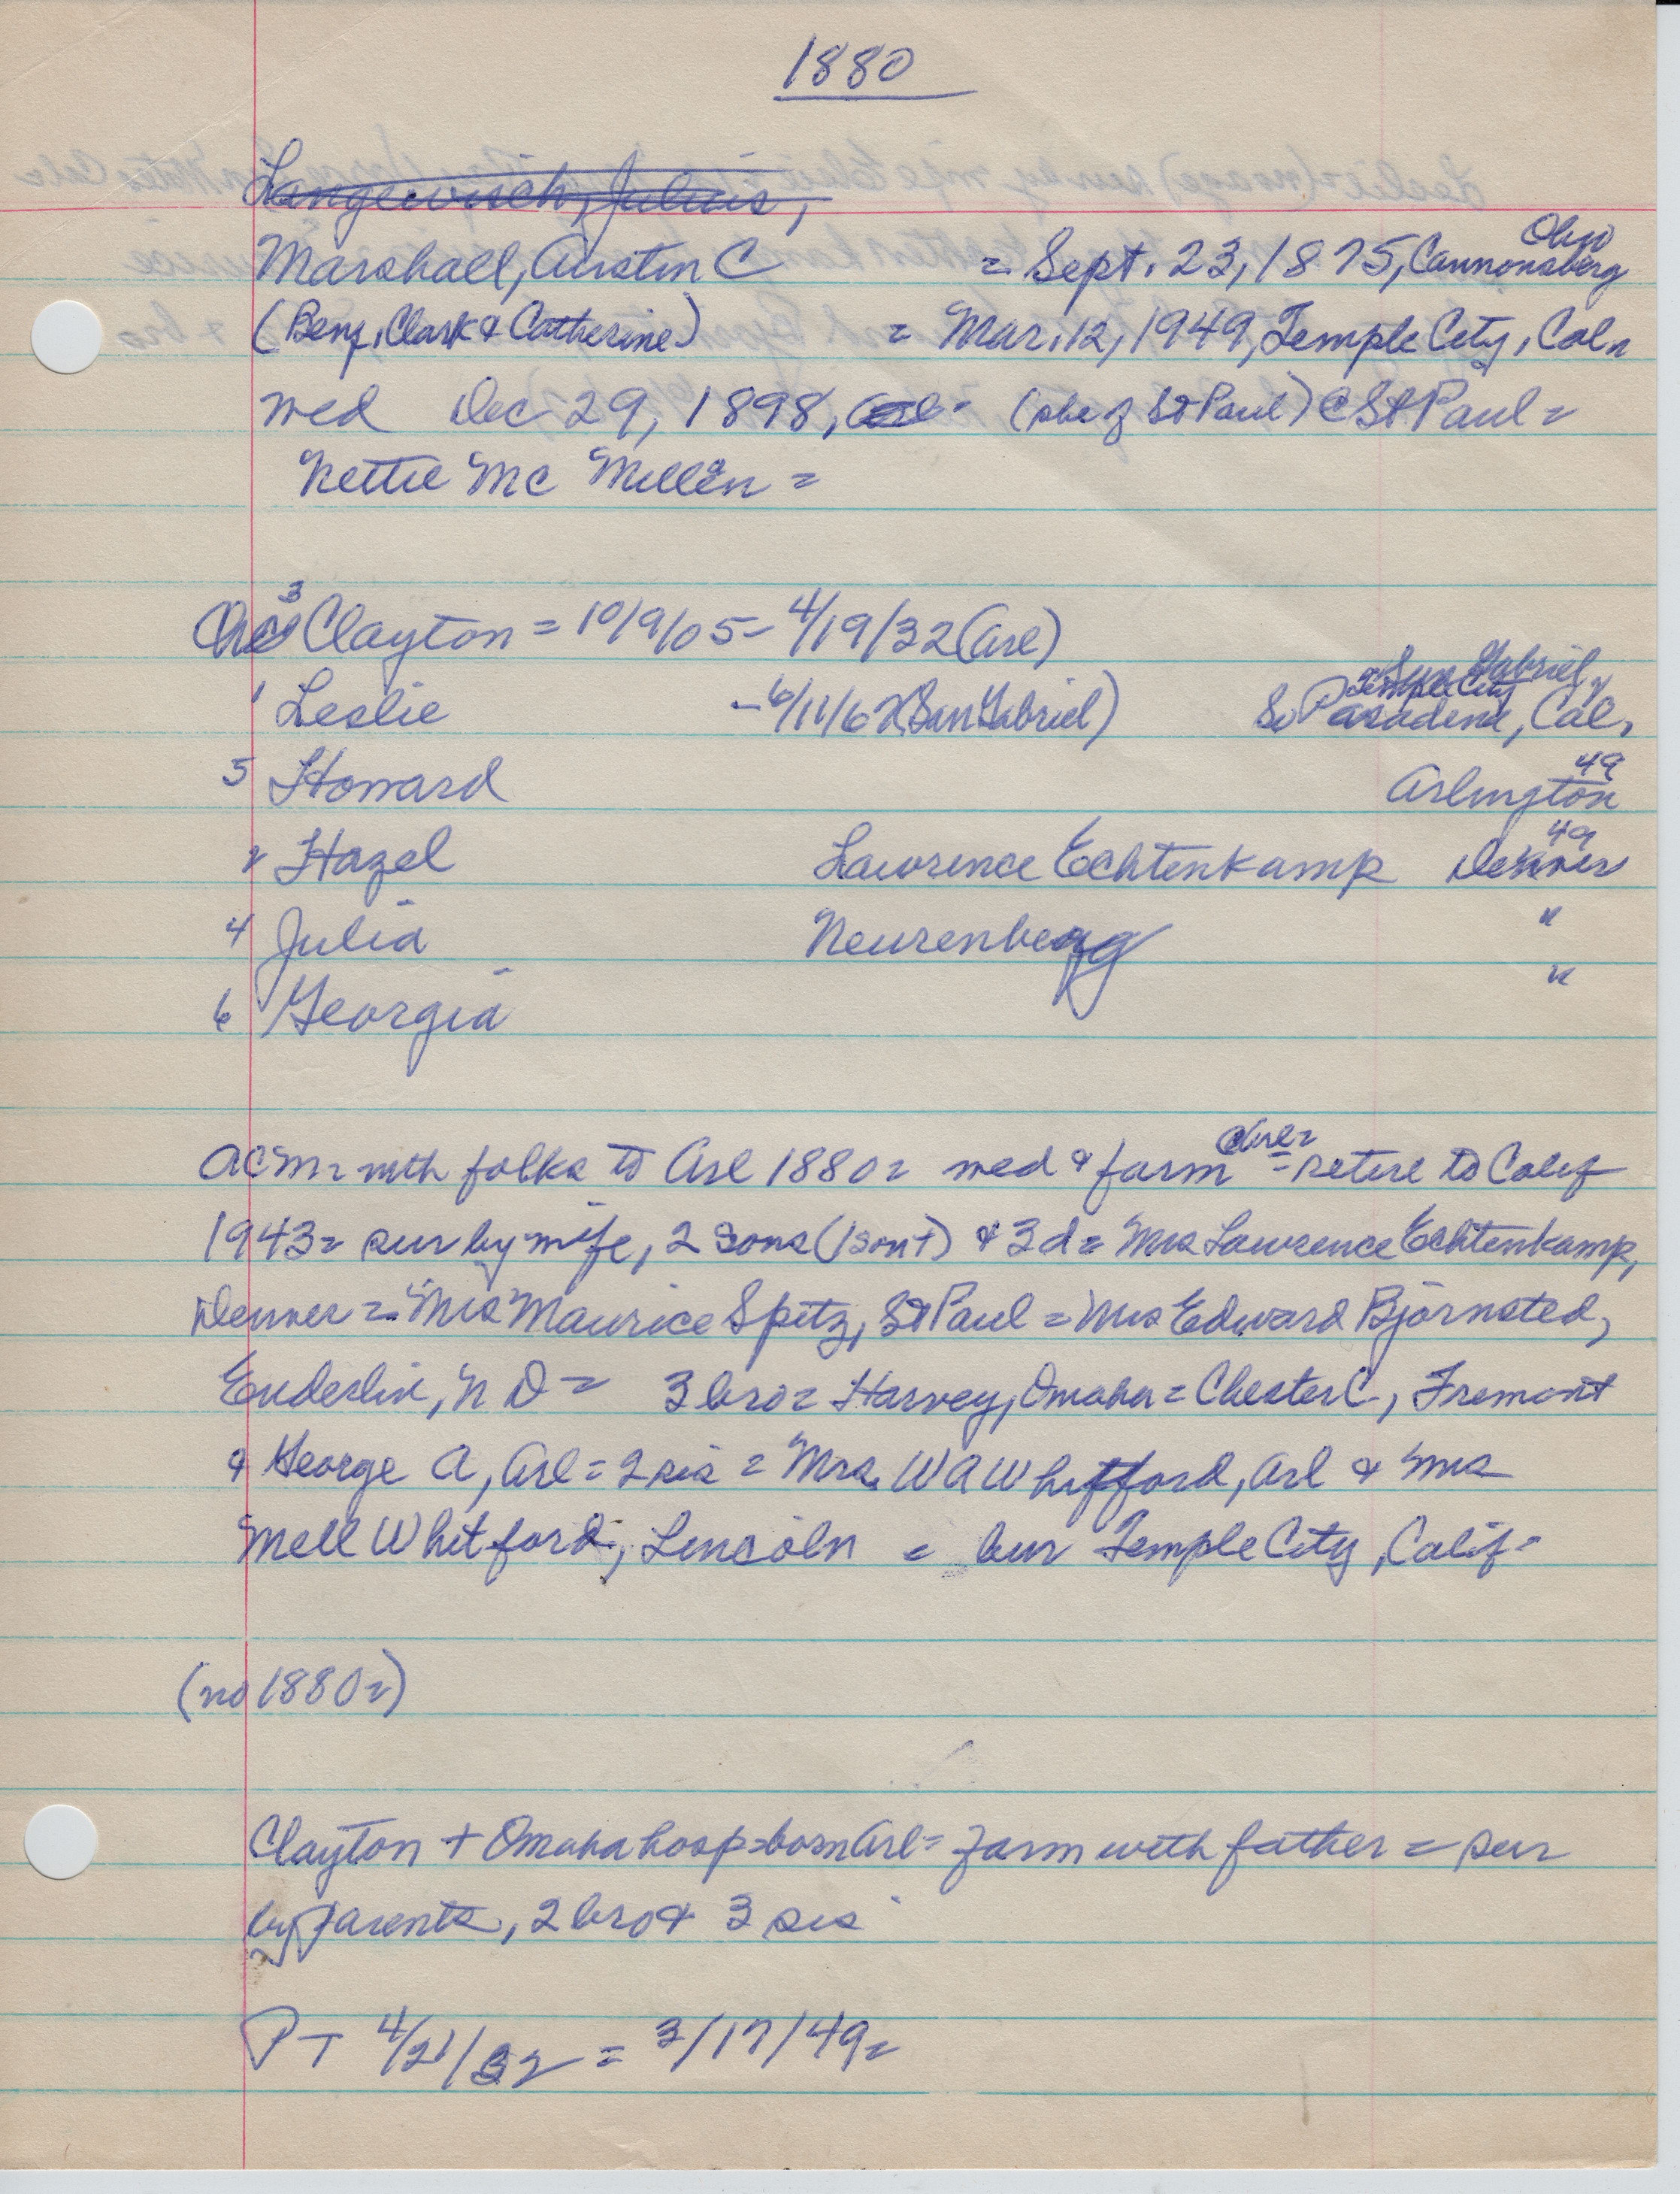 1880
Langewisch, Julius,
Ohio
Marshall, Austin C = Sept. 23, 1875, Cannonsberg
(Benj. Clark & Catherine) = Mar. 12, 1949, Temple City, Cal.
wed Dec 29, 1898, (she of St Paul) @ St Paul =
Nettie Mc Millen =
3
Chi Clayton = 10/9/05 - 4/19/32 (Arl)
San Gabriel,
Temple City
1 Leslie - 6/11/62 (San Gabriel) So Pasadena, Cal,
49
5 Howard Arlington
49
2 Hazel Lawrence Echtenkamp Denver
4 Julia Neurenberg "
6 Georgia "
Arl =
ACM = with folks to Arl 1880 = wed & farm = retire to Calif
1943 = sur by wife, 2 sons (1 son +) & 3 d = Mrs Lawrence Echtenkamp,
Denver = Mrs Maurice Spitz, St Paul = Mrs Edward Bjornsted,
Enderlin, N D = 3 bro = Harvey, Omaha = Chester C, Fremont
& George A, Arl = 2 sis = Mrs. W A Whitford, Arl & Mrs
Mell Whitford, Lincoln = bur Temple City, Calif -
(no 1880 =)
Clayton + Omaha hosp = born Arl = farm with father = sur
by parents, 2 bro & 3 sis
PT 4/21/32 = 3/17/49 =